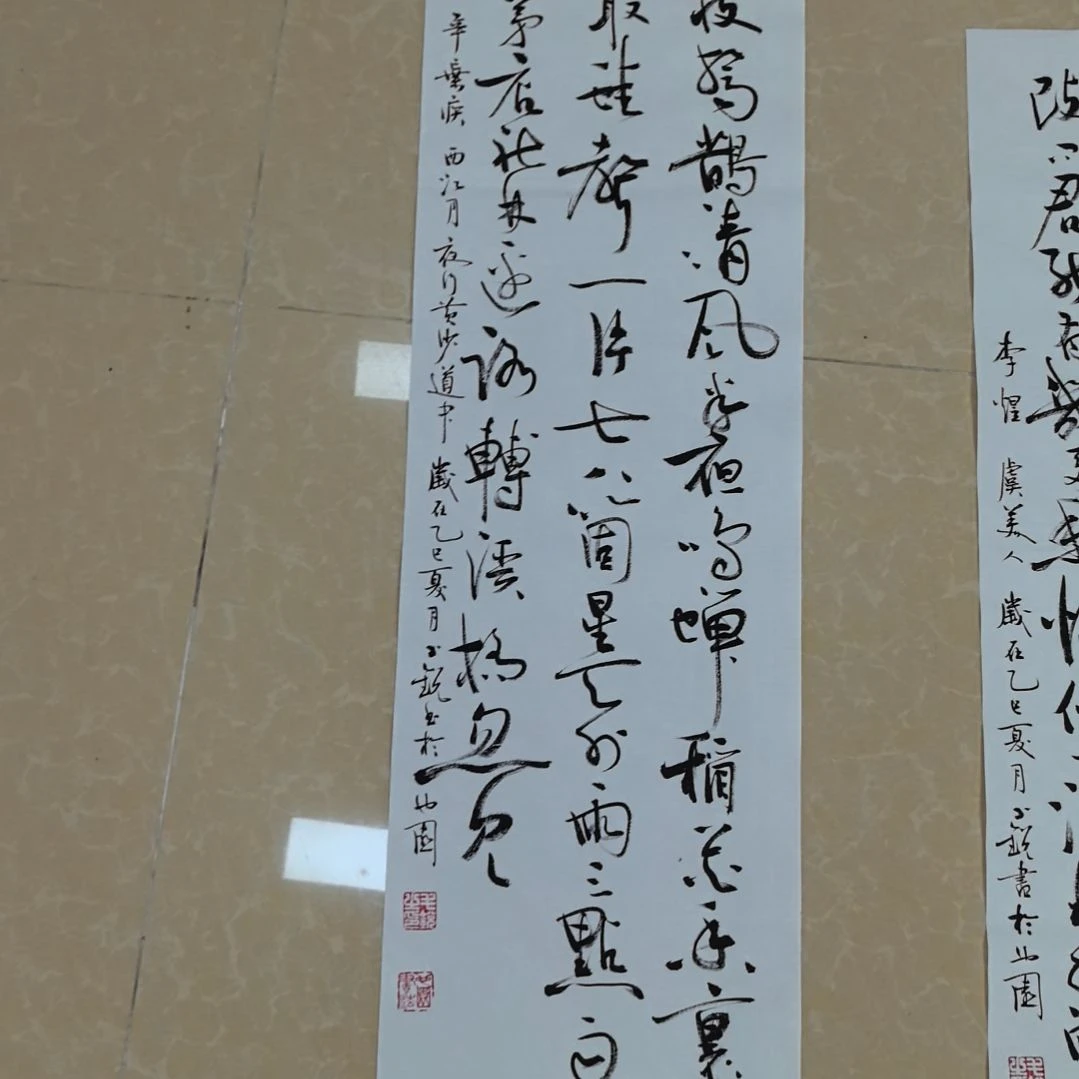 改問君能有幾多愁恰似一江
李煜 虞美人 歲在乙巳夏月 銳書於 園
枝驚鵲清風半夜鳴蟬稻花香裏
取蛙聲一片七八箇星天外兩三點
茅店社林邊路轉溪橋忽見
辛棄疾 西江月 夜行黃沙道中 歲在乙巳夏月 銳書於 園